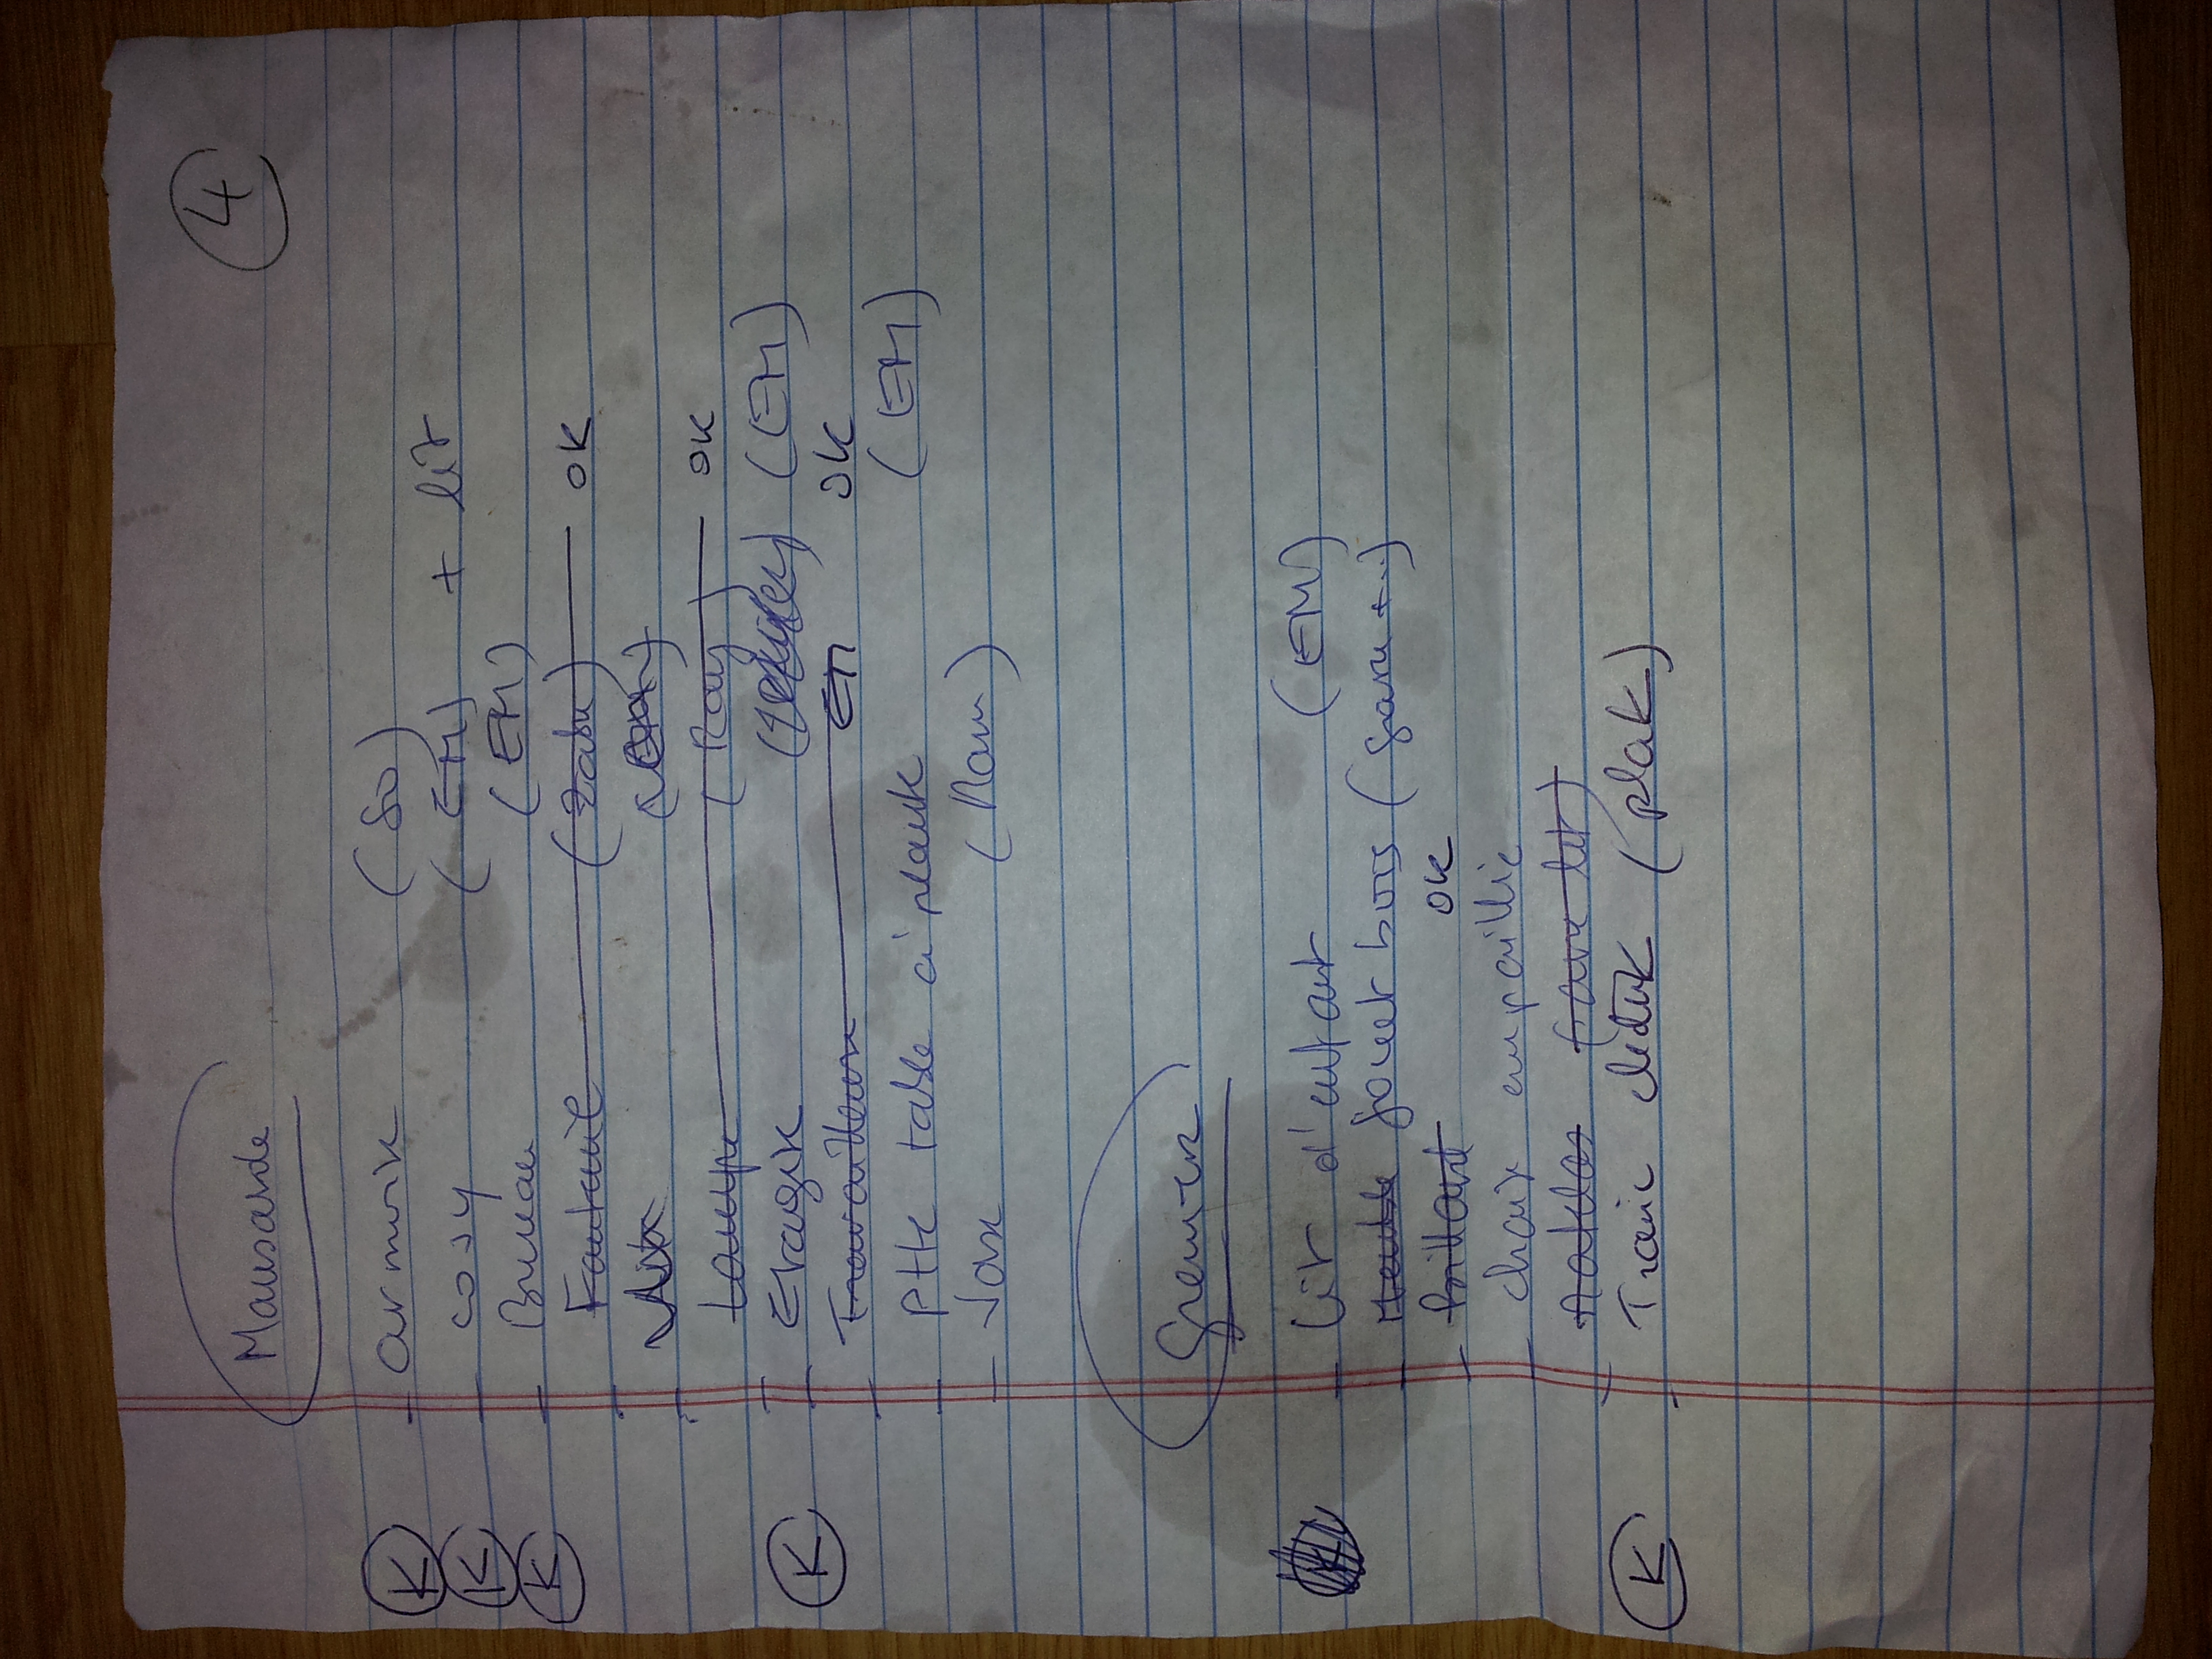 4
Mansarde
K - armoir (SO)
K - cosy (EM) + lit
K - Bureau (EM)
- Fauteuil (Zabu) OK
-
- Lampe (Ray) OK
K - Etagèr (EM)
- Travailleuse EM OK
- Ptte table a plante (EM)
- Vase (Nanu)
Grenier
- Lit d'enfant (EM)
- jouet bois
- Brillant OK
- chair empaillie
-
K - Train elect (plak)